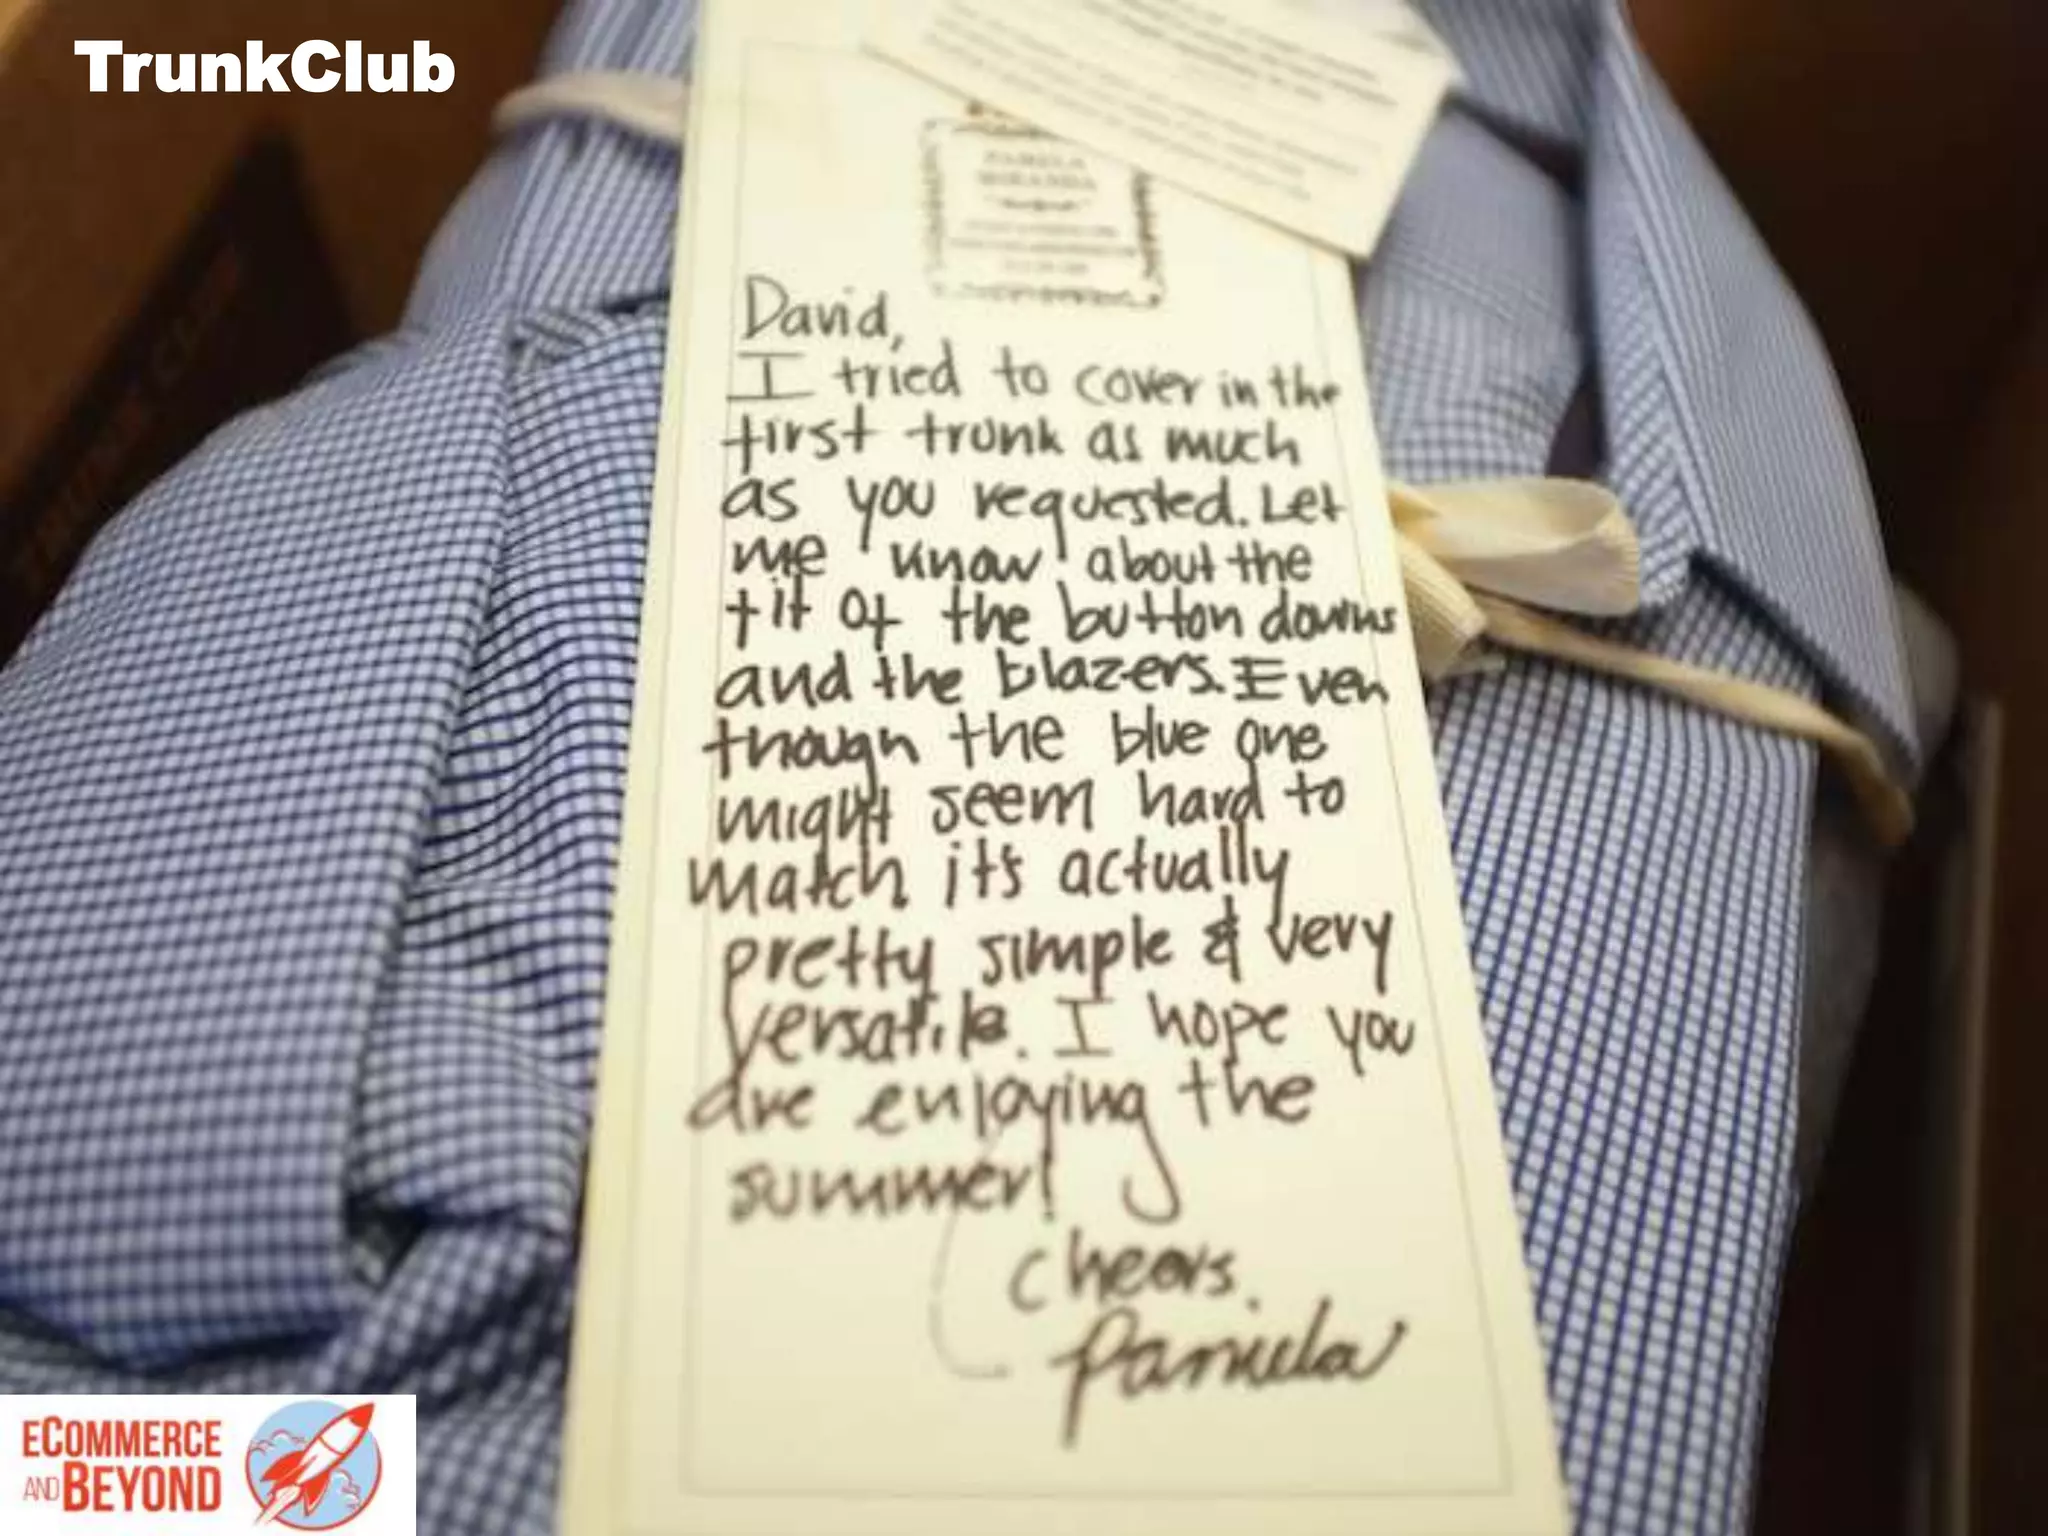 TrunkClub
PAMELA
MIRANDA
David,
I tried to cover in the
first trunk as much
as you requested. Let
me know about the
fit of the button downs
and the blazers. Even
though the blue one
might seem hard to
match it's actually
pretty simple & very
versatile. I hope you
are enjoying the
summer!
Cheers,
Pamela
ECOMMERCE
AND BEYOND